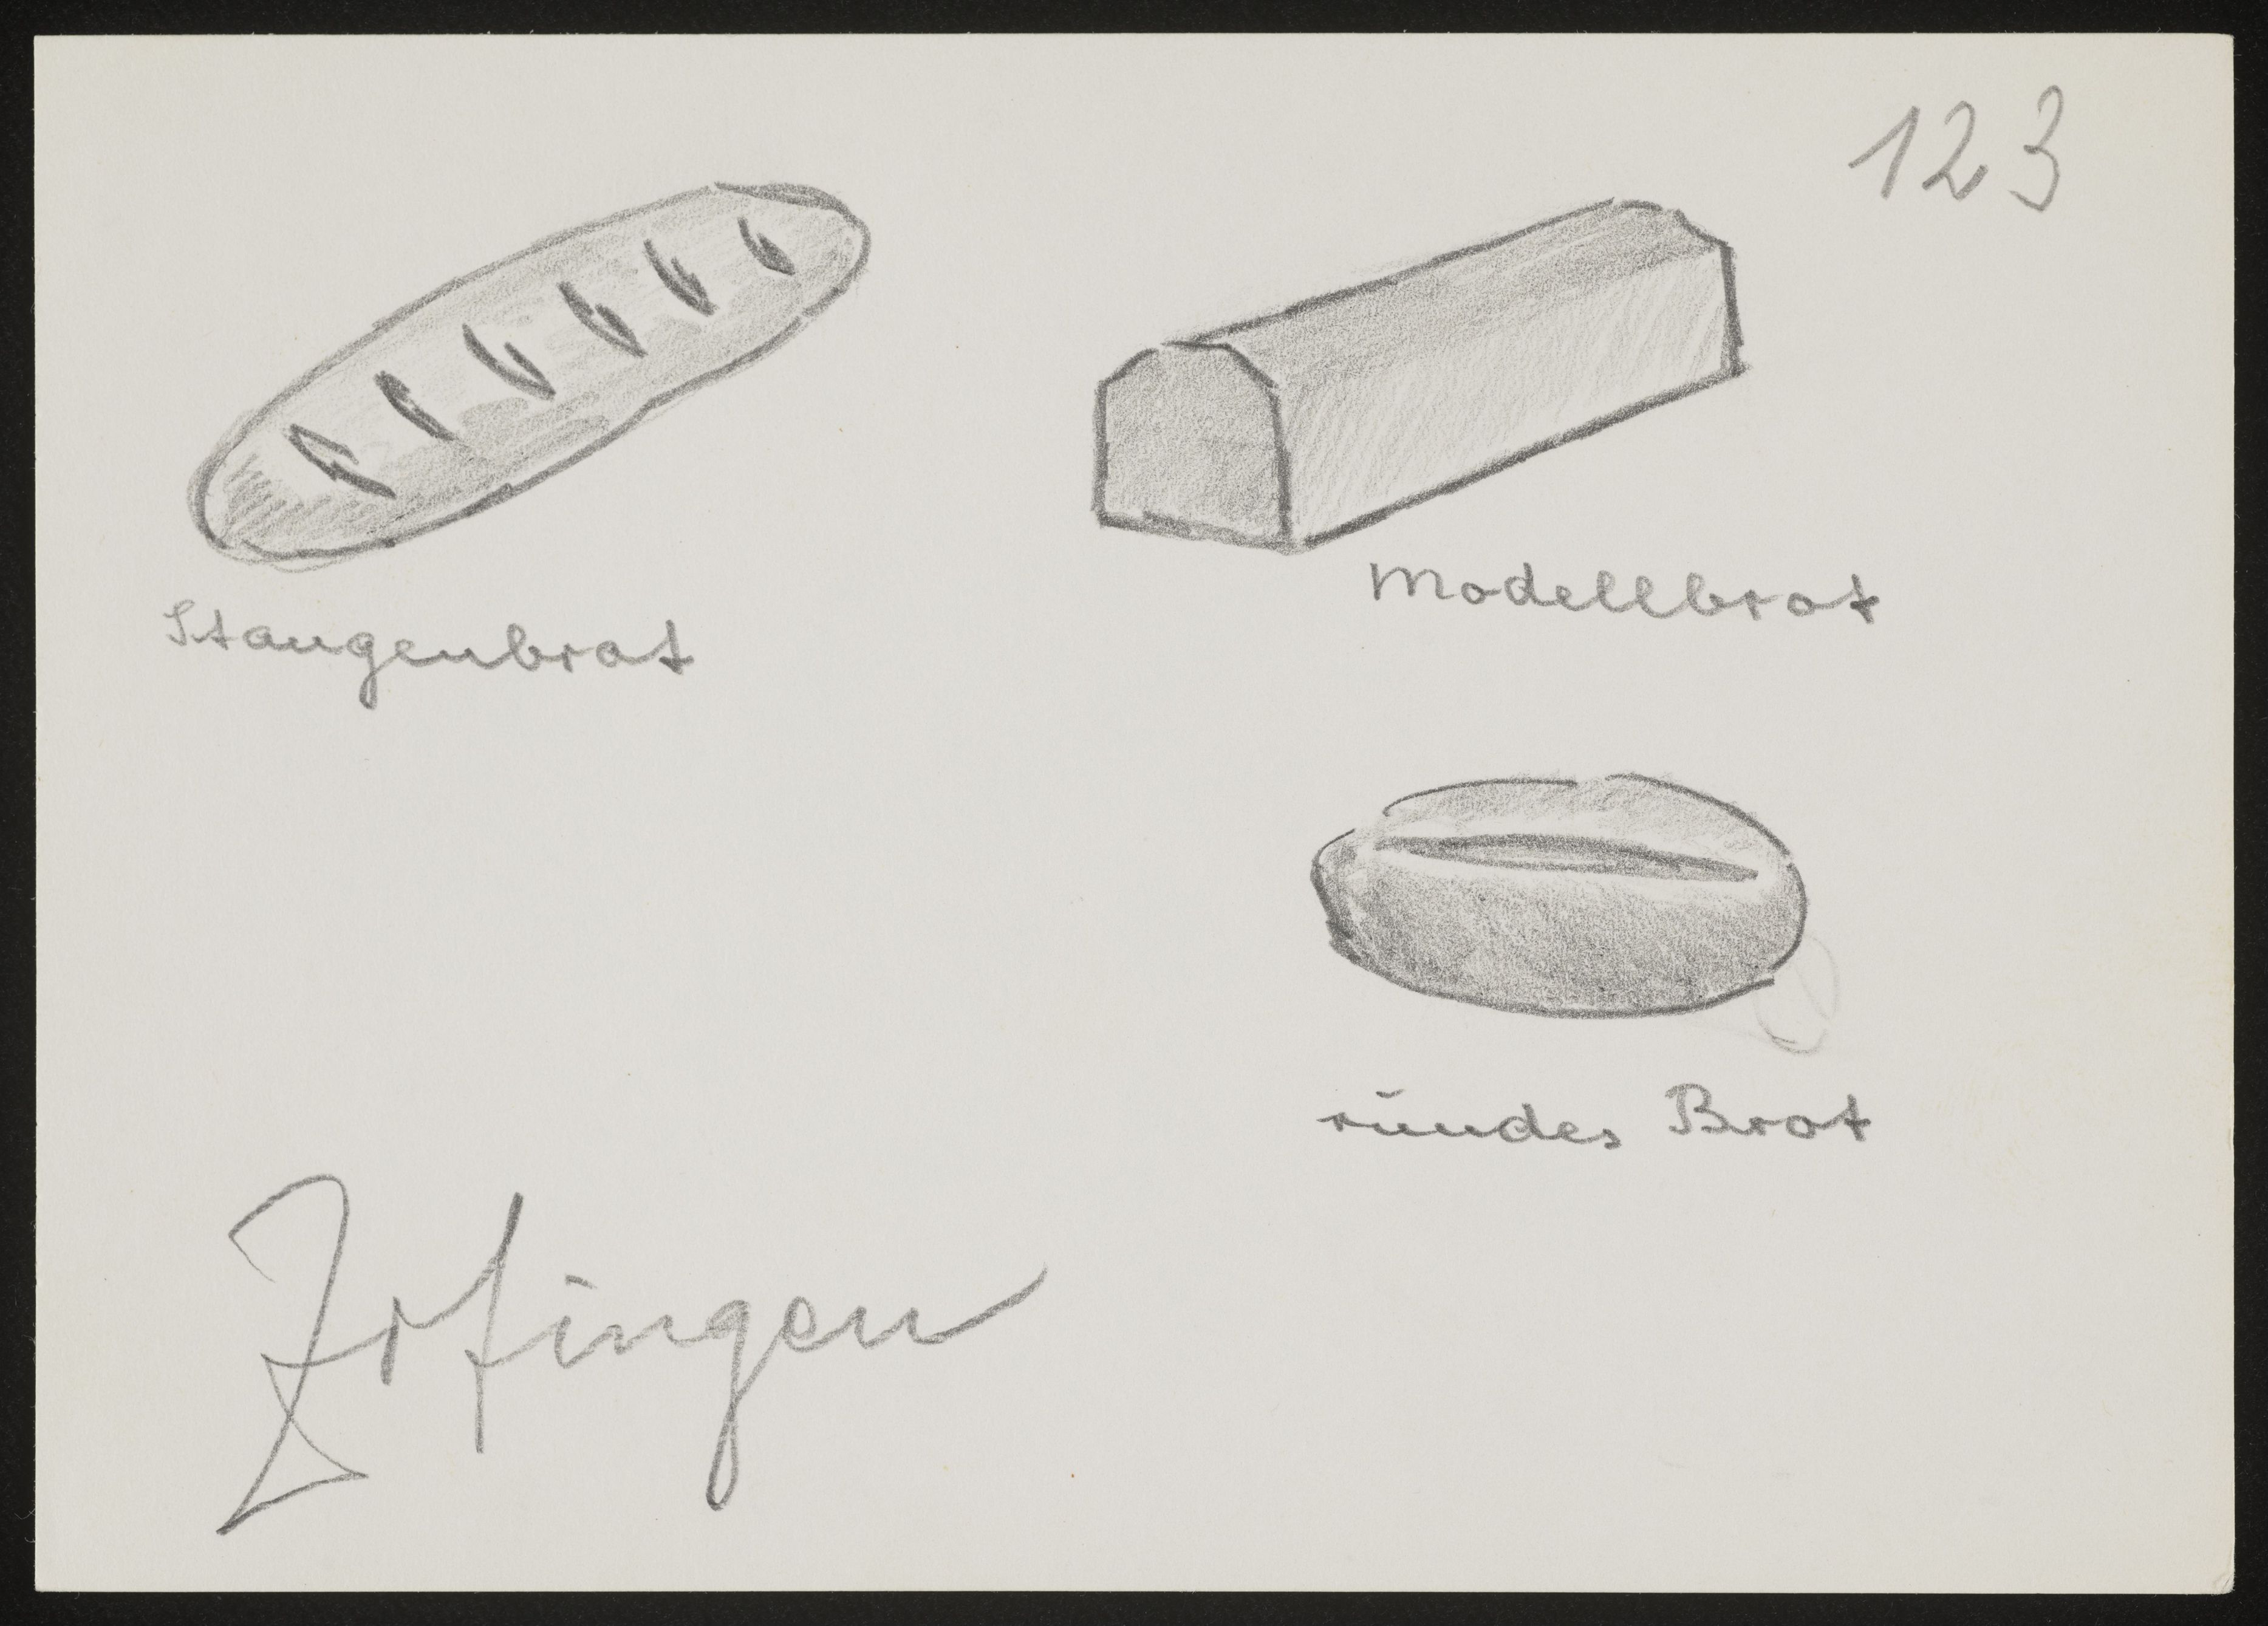 123
Stangenbrot
Modellbrot
rundes Brot
Zofingen